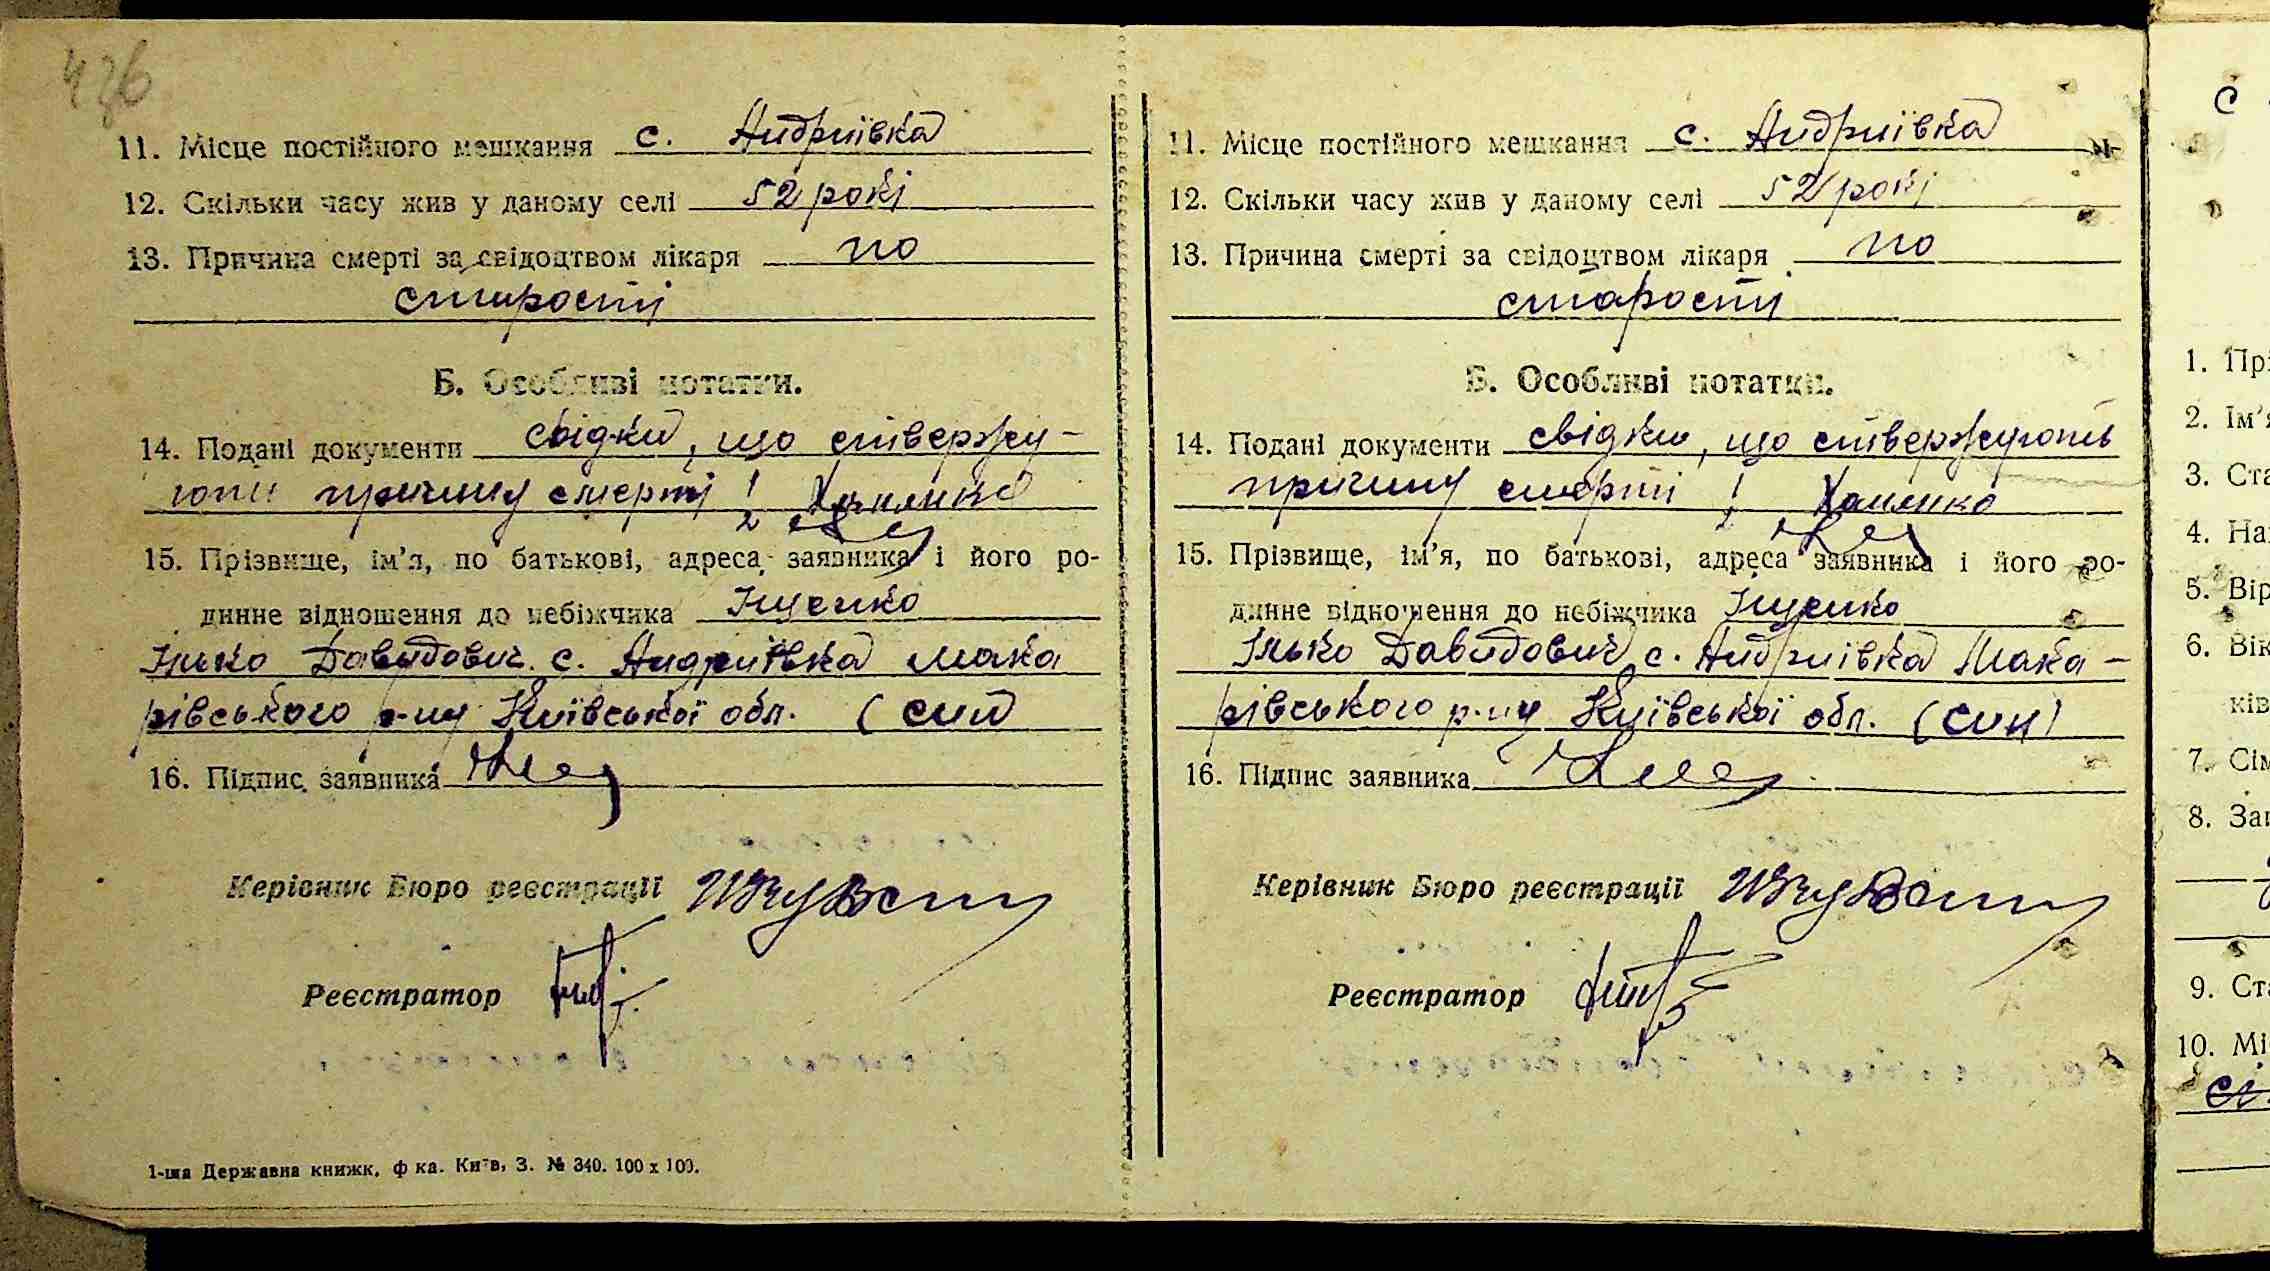 436
11. Місце постійного мешкання с. Андриївка
12. Скільки часу жив у даному селі 52 рокі
13. Причина смерті за свідоцтвом лікаря по
старости
Б. Особливі нотатки.
14. Подані документи свідки, що ствержу-
ють причину смерті 1 Хоменко
2
15. Прізвище, ім'я, по батькові, адреса заявника і його ро-
динне відношення до небіжчика Іщенко
Ілько Давидович с. Андриївка Мака
рівського р-ну Київської обл. (син
16. Підпис заявника
Керівник Бюро реєстрації
Реєстратор
1-ша Державна книжк. ф-ка. Київ, З. № 340. 100 x 100.
11. Місце постійного мешкання с. Андриївка
12. Скільки часу жив у даному селі 52 рокі
13. Причина смерті за свідоцтвом лікаря по
старости
Б. Особливі нотатки.
14. Подані документи свідки, що ствержують
причину смерті 1 Хоменко
2
15. Прізвище, ім'я, по батькові, адреса заявника і його ро-
динне відношення до небіжчика Іщенко
Ілько Давидович с. Андриївка Мака-
рівського р-ну Київської обл. (син)
16. Підпис заявника
Керівник Бюро реєстрації
Реєстратор
с
1. Прі
2. Ім'я
3. Ста
4. На
5. Вір
6. Вік
ків
7. Сім
8. Зан
9. Ста
10. Мі